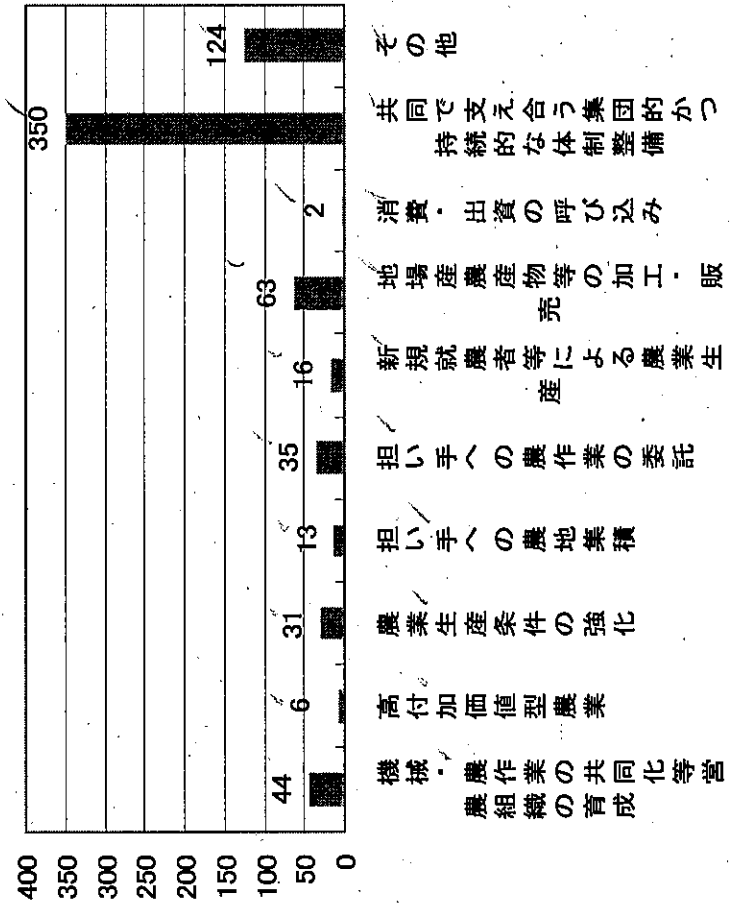 400
350
300
250
200
150
100
50
0
44
6
31
13
35
16
63
2
350
124
機械・農作業の共同化等営
農組織の育成
高付加価値型農業
農業生産条件の強化
担い手への農地集積
担い手への農作業の委託
新規就農者等による農業生
産
地場産農産物等の加工・販
売
消費・出資の呼び込み
共同で支え合う集団的かつ
持続的な体制整備
その他